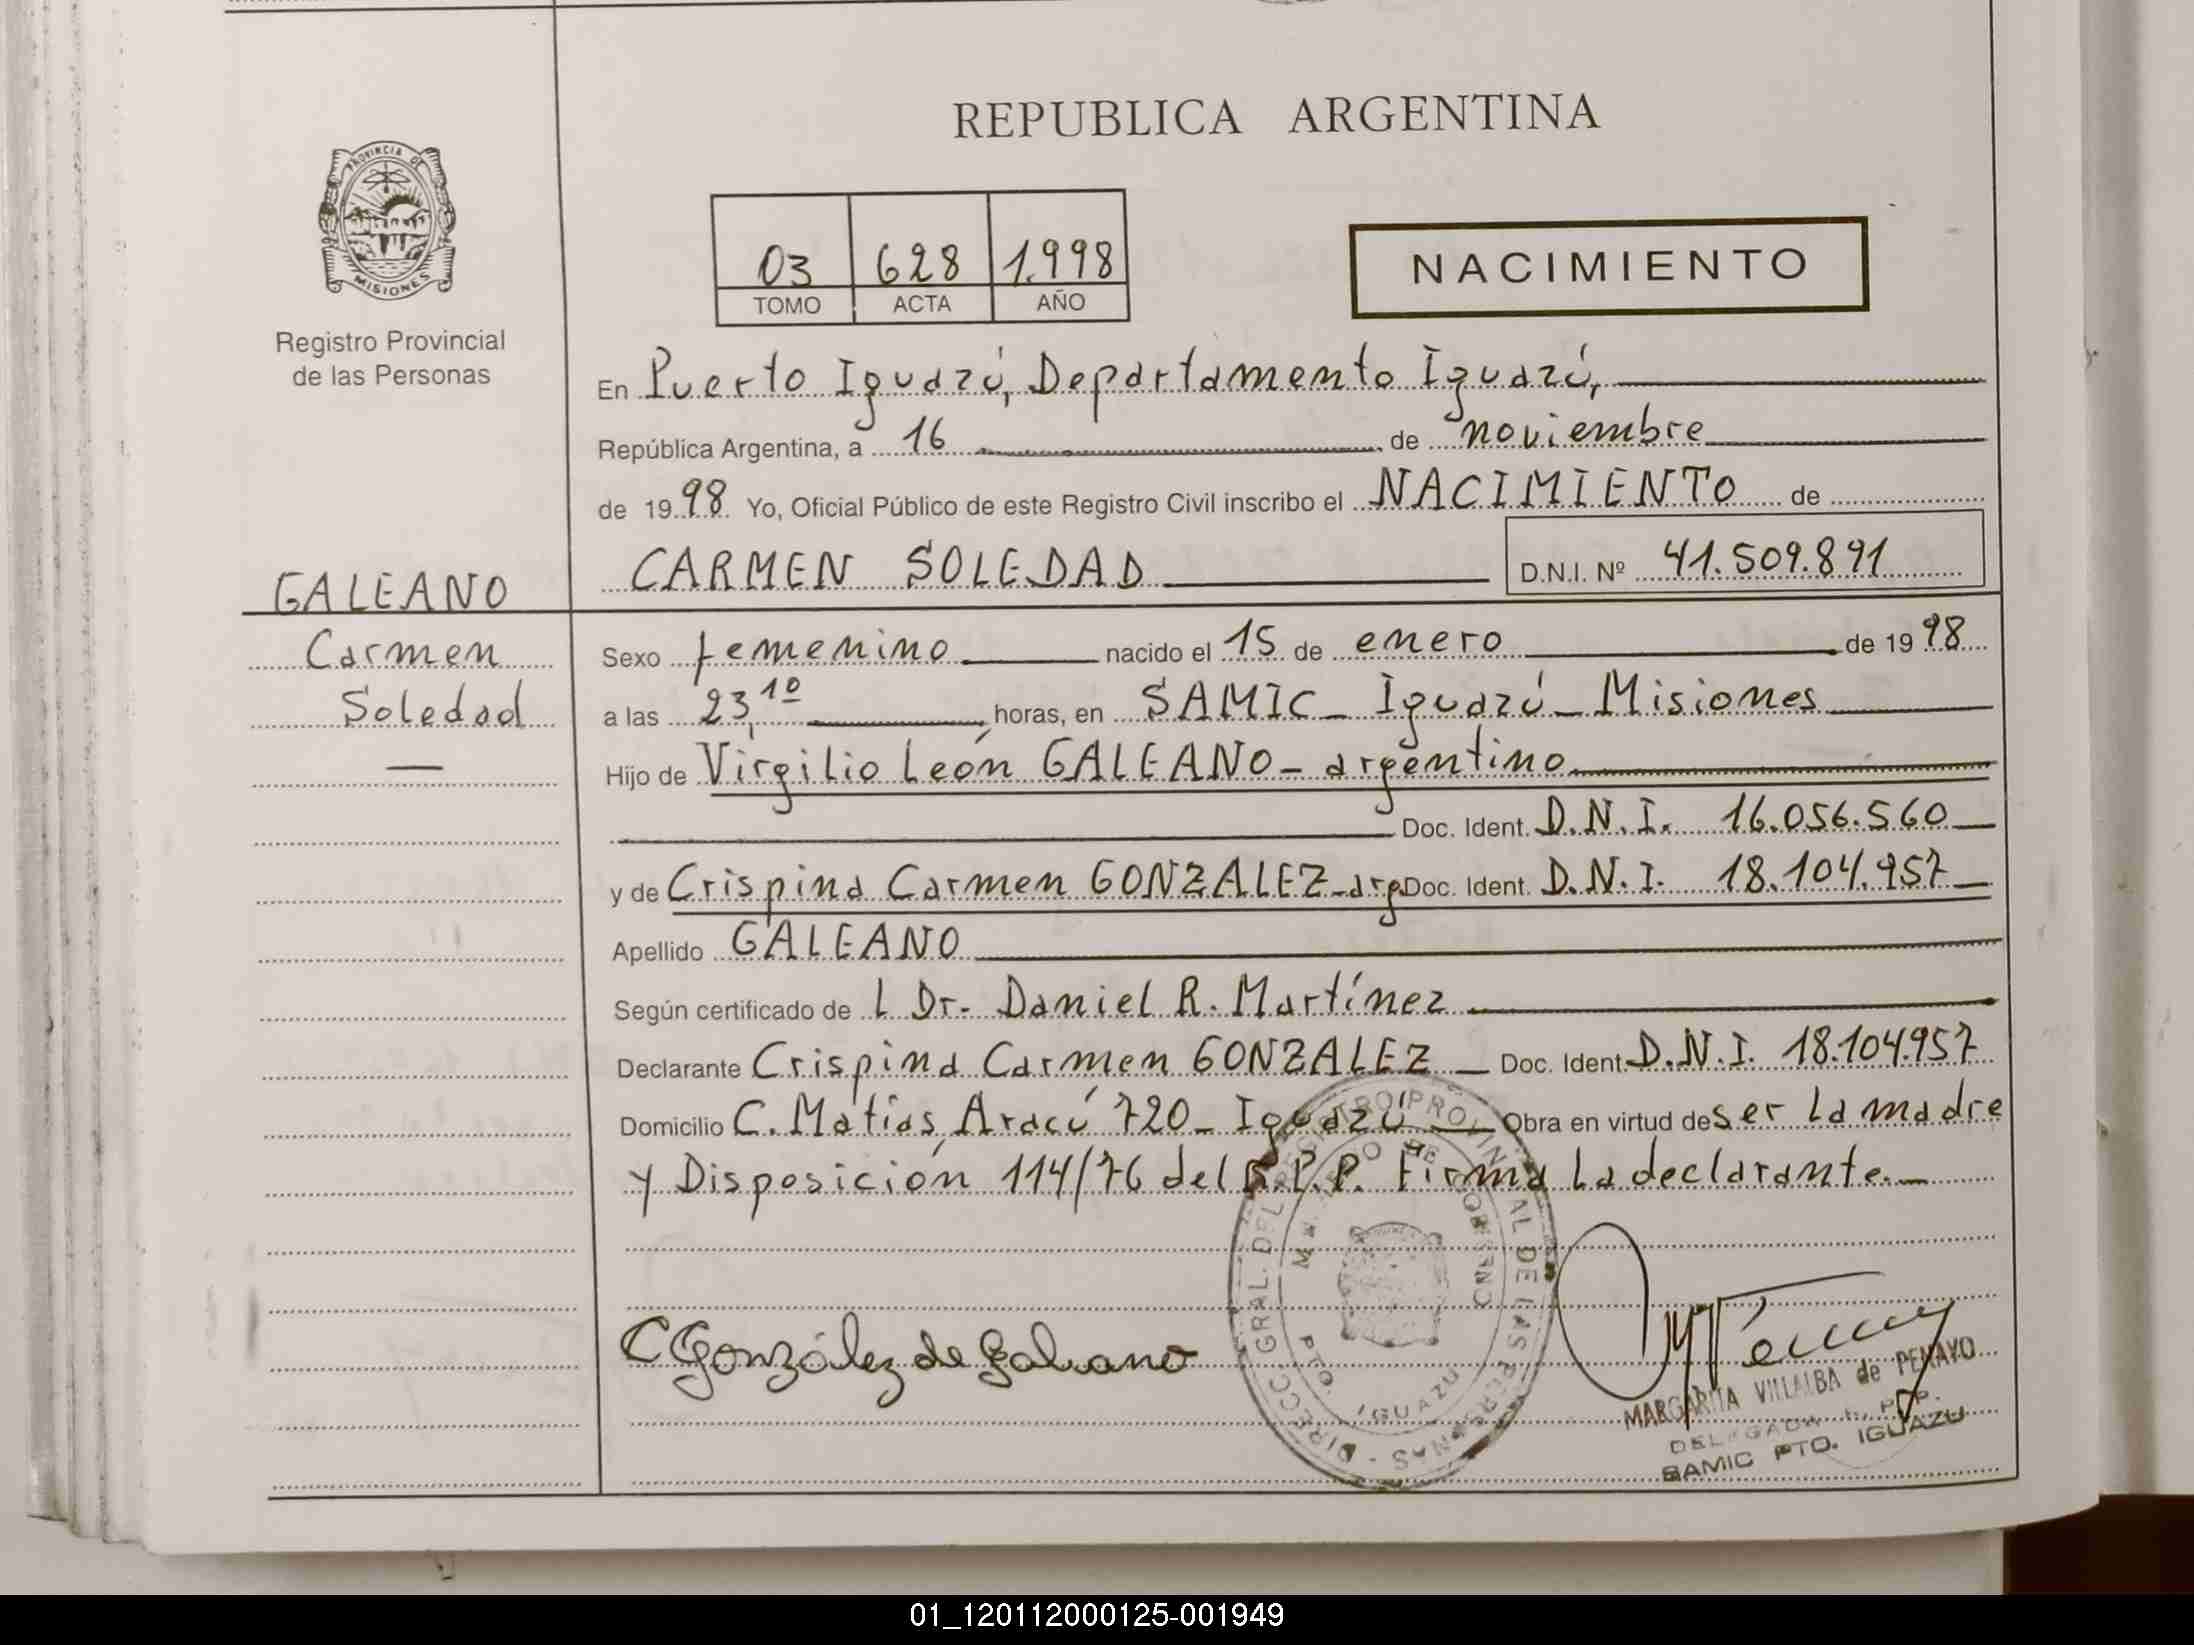 REPUBLICA ARGENTINA
PROVINCIA DE MISIONES
Registro Provincial
de las Personas
03 628 1.998
TOMO ACTA AÑO
NACIMIENTO
En Puerto Iguazú, Departamento Iguazú,
República Argentina, a 16 de noviembre
de 1998 Yo, Oficial Público de este Registro Civil inscribo el NACIMIENTO de
CARMEN SOLEDAD D.N.I. Nº 41.509.891
GALEANO
Carmen
Soledad
Sexo femenino nacido el 15 de enero de 1998
a las 23,10 horas, en SAMIC - Iguazú - Misiones
Hijo de Virgilio León GALEANO - argentino
Doc. Ident. D.N.I. 16.056.560
y de Crispina Carmen GONZALEZ - arg. Doc. Ident. D.N.I. 18.104.957
Apellido GALEANO
Según certificado de l Dr. Daniel R. Martínez
Declarante Crispina Carmen GONZALEZ Doc. Ident. D.N.I. 18.104.957
Domicilio C. Matias Aracú 720 - Iguazú Obra en virtud de ser la madre
y Disposición 114/76 del R.P.P. Firma la declarante.
DIRECC. GRAL. DEL REGISTRO PROVINCIAL DE LAS PERSONAS
MINISTERIO DE GOBIERNO
PTO. IGUAZU
C González de Galeano
MARGARITA VILLALBA de PENAYO
DELEGADA R. P. P.
SAMIC PTO. IGUAZU
01_120112000125-001949